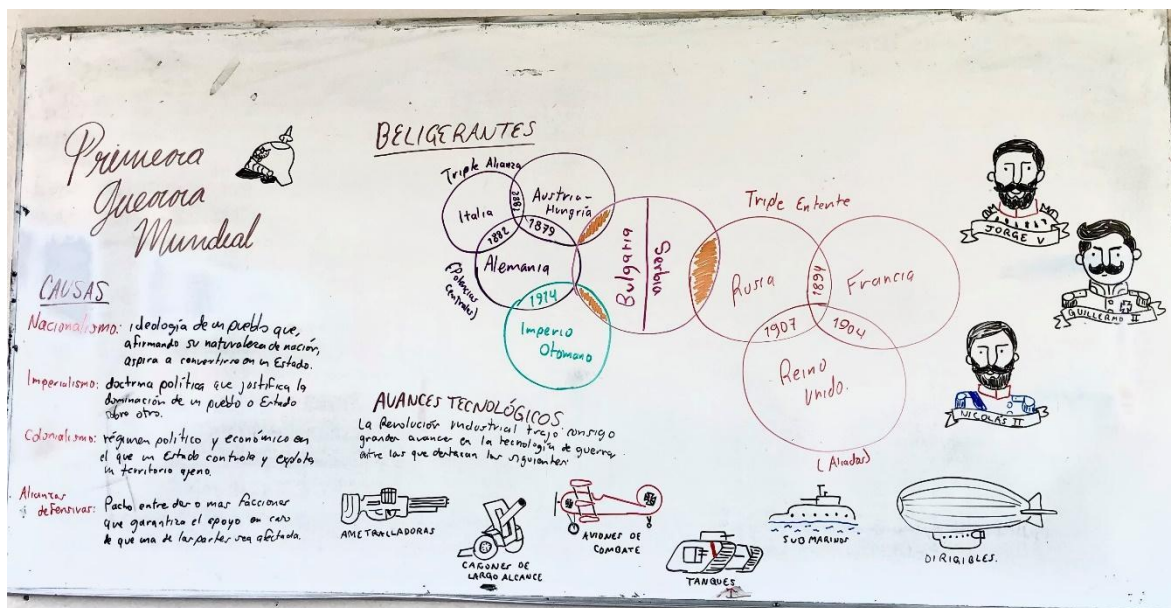 Primera
Guerra
Mundial
CAUSAS
Nacionalismo: ideología de un pueblo que,
afirmando su naturaleza de nación,
aspira a convertirse en un Estado.
Imperialismo: doctrina política que justifica la
dominación de un pueblo o Estado
sobre otro.
Colonialismo: régimen político y económico en
el que un Estado controla y explota
un territorio ajeno.
Alianzas
defensivas: Pacto entre dos o mas facciones
que garantiza el apoyo en caso
de que una de las partes sea afectada.
BELIGERANTES
Triple Alianza
Italia
1882
Austria-
Hungría
1882
1879
Alemania
(Potencias
Centrales)
1914
Imperio
Otomano
Bulgaria
Serbia
Triple Entente
Rusia
1894
Francia
1907
1904
Reino
Unido.
(Aliados)
AVANCES TECNOLÓGICOS
La Revolución industrial trajo consigo
grandes avances en la tecnología de guerra,
entre las que destacan las siguientes:
AMETRALLADORAS
CAÑONES DE
LARGO ALCANCE
AVIONES DE
COMBATE
TANQUES
SUBMARINOS
DIRIGIBLES.
JORGE V
GUILLERMO II
NICOLÁS II